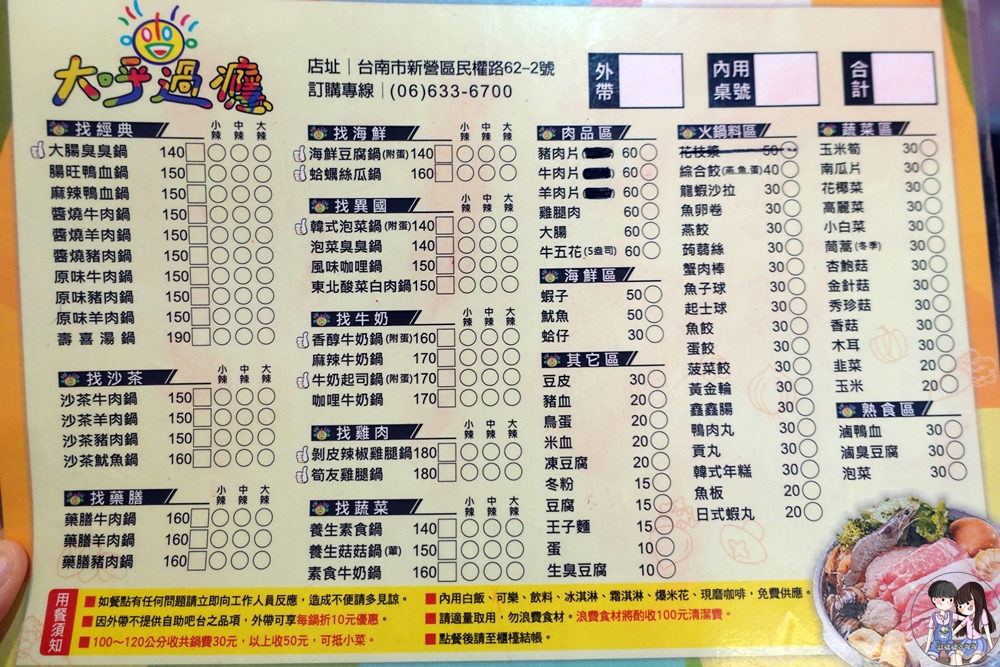 大呼過癮
店址｜台南市新營區民權路62-2號
訂購專線｜(06)633-6700
外帶
內用桌號
合計
找經典 小辣 中辣 大辣
大腸臭臭鍋 140
腸旺鴨血鍋 150
麻辣鴨血鍋 150
醬燒牛肉鍋 150
醬燒羊肉鍋 150
醬燒豬肉鍋 150
原味牛肉鍋 150
原味豬肉鍋 150
原味羊肉鍋 150
壽喜湯鍋 190
找沙茶 小辣 中辣 大辣
沙茶牛肉鍋 150
沙茶羊肉鍋 150
沙茶豬肉鍋 150
沙茶魷魚鍋 160
找藥膳 小辣 中辣 大辣
藥膳牛肉鍋 160
藥膳羊肉鍋 160
藥膳豬肉鍋 160
找海鮮 小辣 中辣 大辣
海鮮豆腐鍋(附蛋) 140
蛤蠣絲瓜鍋 160
找異國 小辣 中辣 大辣
韓式泡菜鍋(附蛋) 140
泡菜臭臭鍋 140
風味咖哩鍋 150
東北酸菜白肉鍋 150
找牛奶 小辣 中辣 大辣
香醇牛奶鍋(附蛋) 160
麻辣牛奶鍋 170
牛奶起司鍋(附蛋) 170
咖哩牛奶鍋 170
找雞肉 小辣 中辣 大辣
剝皮辣椒雞腿鍋 180
筍友雞腿鍋 180
找蔬菜 小辣 中辣 大辣
養生素食鍋 140
養生菇菇鍋(葷) 150
素食牛奶鍋 160
肉品區
豬肉片 60
牛肉片 60
羊肉片 60
雞腿肉 60
大腸 60
牛五花(5盎司) 60
海鮮區
蝦子 50
魷魚 50
蛤仔 30
其它區
豆皮 30
豬血 20
鳥蛋 20
米血 20
凍豆腐 20
冬粉 15
豆腐 15
王子麵 15
蛋 10
生臭豆腐 10
火鍋料區
花枝漿 50
綜合餃(燕.魚.蛋) 40
龍蝦沙拉 30
魚卵卷 30
燕餃 30
蒟蒻絲 30
蟹肉棒 30
魚子球 30
起士球 30
魚餃 30
蛋餃 30
菠菜餃 30
黃金輪 30
鑫鑫腸 30
鴨肉丸 30
貢丸 30
韓式年糕 30
魚板 20
日式蝦丸 20
蔬菜區
玉米筍 30
南瓜片 30
花椰菜 30
高麗菜 30
小白菜 30
茼蒿(冬季) 30
杏鮑菇 30
金針菇 30
秀珍菇 30
香菇 30
木耳 30
韭菜 20
玉米 20
熟食區
滷鴨血 30
滷臭豆腐 30
泡菜 30
用餐須知
■如餐點有任何問題請立即向工作人員反應，造成不便請多見諒。
■因外帶不提供自助吧台之品項，外帶可享每鍋折10元優惠。
■100～120公分收共鍋費30元，以上收50元，可抵小菜。
■內用白飯、可樂、飲料、冰淇淋、霜淇淋、爆米花、現磨咖啡，免費供應。
■請適量取用，勿浪費食材。浪費食材將酌收100元清潔費。
■點餐後請至櫃檯結帳。